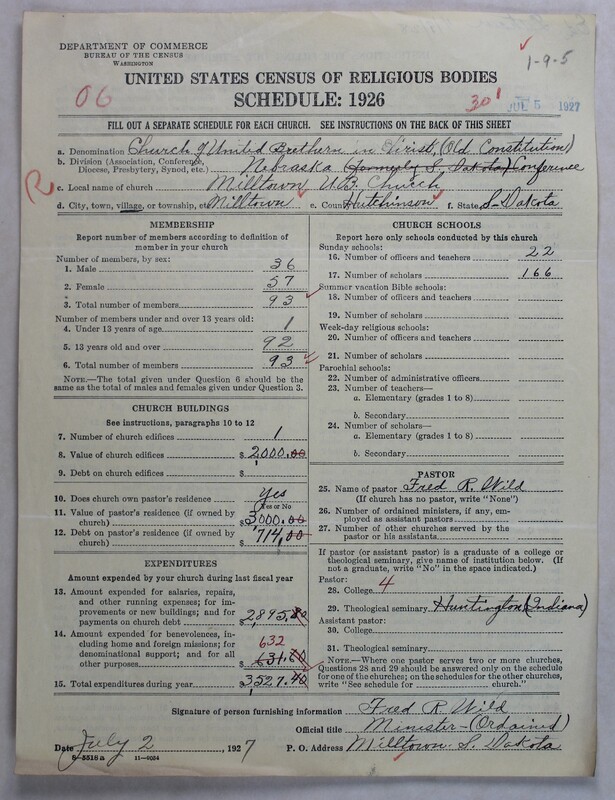 DEPARTMENT OF COMMERCE
BUREAU OF THE CENSUS
WASHINGTON
1-9-5
UNITED STATES CENSUS OF RELIGIOUS BODIES
06
SCHEDULE: 1926
30
JUL 5 1927
FILL OUT A SEPARATE SCHEDULE FOR EACH CHURCH. SEE INSTRUCTIONS ON THE BACK OF THIS SHEET
a. Denomination Church of United Brethern in Christ, (Old Constitution)
b. Division (Association, Conference, Diocese, Presbytery, Synod, etc.) Nebraska (formerly S. Dakota) Conference
R
c. Local name of church Milltown U.B. Church
d. City, town, village, or township, etc. Milltown e. County Hutchinson f. State S-Dakota
MEMBERSHIP
Report number of members according to definition of
member in your church
Number of members, by sex:
1. Male 36
2. Female 57
3. Total number of members 93
Number of members under and over 13 years old:
4. Under 13 years of age 1
5. 13 years old and over 92
6. Total number of members 93
NOTE.—The total given under Question 6 should be
same as the total of males and females given under Question 3.
CHURCH BUILDINGS
See instructions, paragraphs 10 to 12
7. Number of church edifices 1
8. Value of church edifices $ 2,000.00
9. Debt on church edifices $
10. Does church own pastor's residence Yes
(Yes or No)
11. Value of pastor's residence (if owned by
church) $ 3000.00
12. Debt on pastor's residence (if owned by
church) $ 714.00
EXPENDITURES
Amount expended by your church during last fiscal year
13. Amount expended for salaries, repairs,
and other running expenses; for im-
provements or new buildings; and for
payments on church debt $ 2,895.80
14. Amount expended for benevolences, in-
cluding home and foreign missions; for
denominational support; and for all
other purposes 632
631.60
15. Total expenditures during year $ 3,527.40
CHURCH SCHOOLS
Report here only schools conducted by this church
Sunday schools:
16. Number of officers and teachers 22
17. Number of scholars 166
Summer vacation Bible schools:
18. Number of officers and teachers
19. Number of scholars
Week-day religious schools:
20. Number of officers and teachers
21. Number of scholars
Parochial schools:
22. Number of administrative officers
23. Number of teachers—
a. Elementary (grades 1 to 8)
b. Secondary
24. Number of scholars—
a. Elementary (grades 1 to 8)
b. Secondary
PASTOR
25. Name of pastor Fred R. Wild
(If church has no pastor, write "None")
26. Number of ordained ministers, if any, em-
ployed as assistant pastors
27. Number of other churches served by the
pastor or his assistants
If pastor (or assistant pastor) is a graduate of a college or
theological seminary, give name of institution below. (If
not a graduate, write "No" in the space indicated.)
Pastor:
28. College 4
29. Theological seminary Huntington (Indiana)
Assistant pastor:
30. College
31. Theological seminary
NOTE.—Where one pastor serves two or more churches,
Questions 28 and 29 should be answered only on the schedule
for one of the churches; on the schedules for the other churches,
write "See schedule for church."
Signature of person furnishing information Fred R. Wild
Official title Minister (Ordained)
Date July 2, 1927 P. O. Address Milltown S. Dakota
8-5518a 11-9034